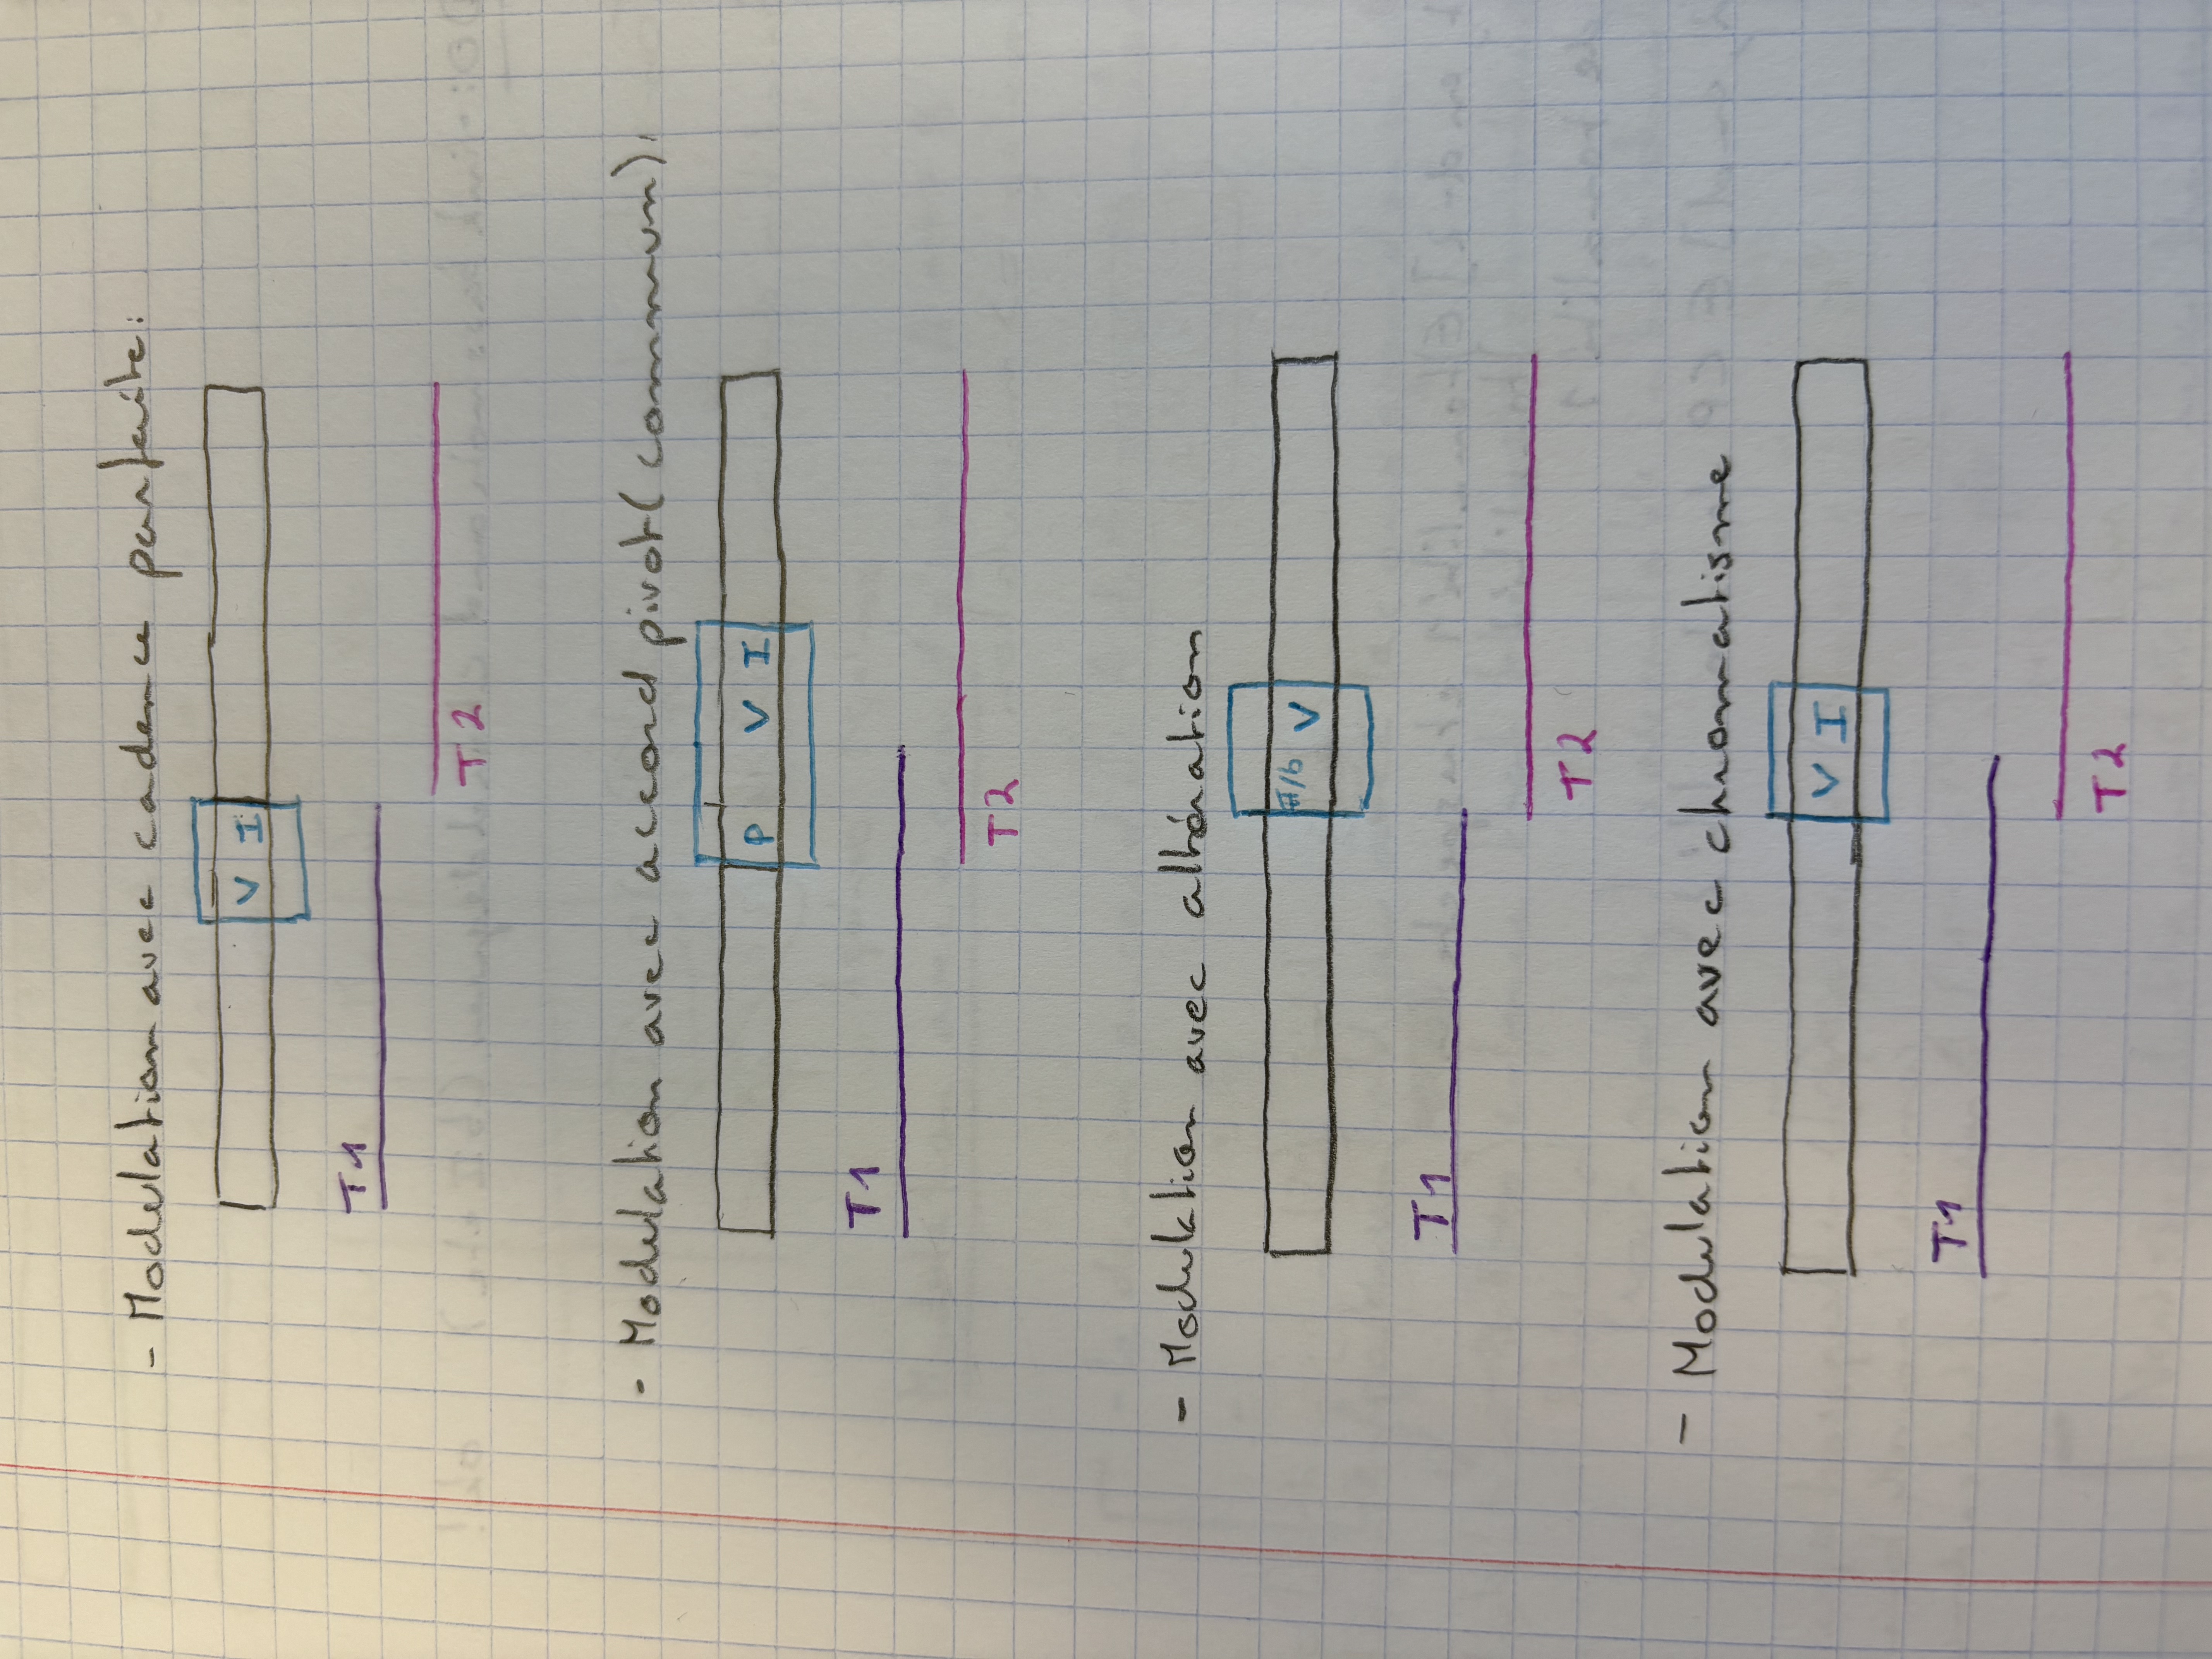 - Modulation avec cadence parfaite:
V I
T1
T2
- Modulation avec accord pivot (commun):
P V I
T1
T2
- Modulation avec altération
#/b V
T1
T2
- Modulation avec chromatisme
V I
T1
T2